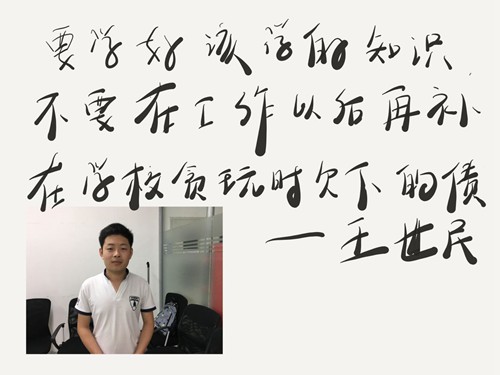 要学好该学的知识
不要在工作以后再补
在学校贪玩时欠下的债
一王世民